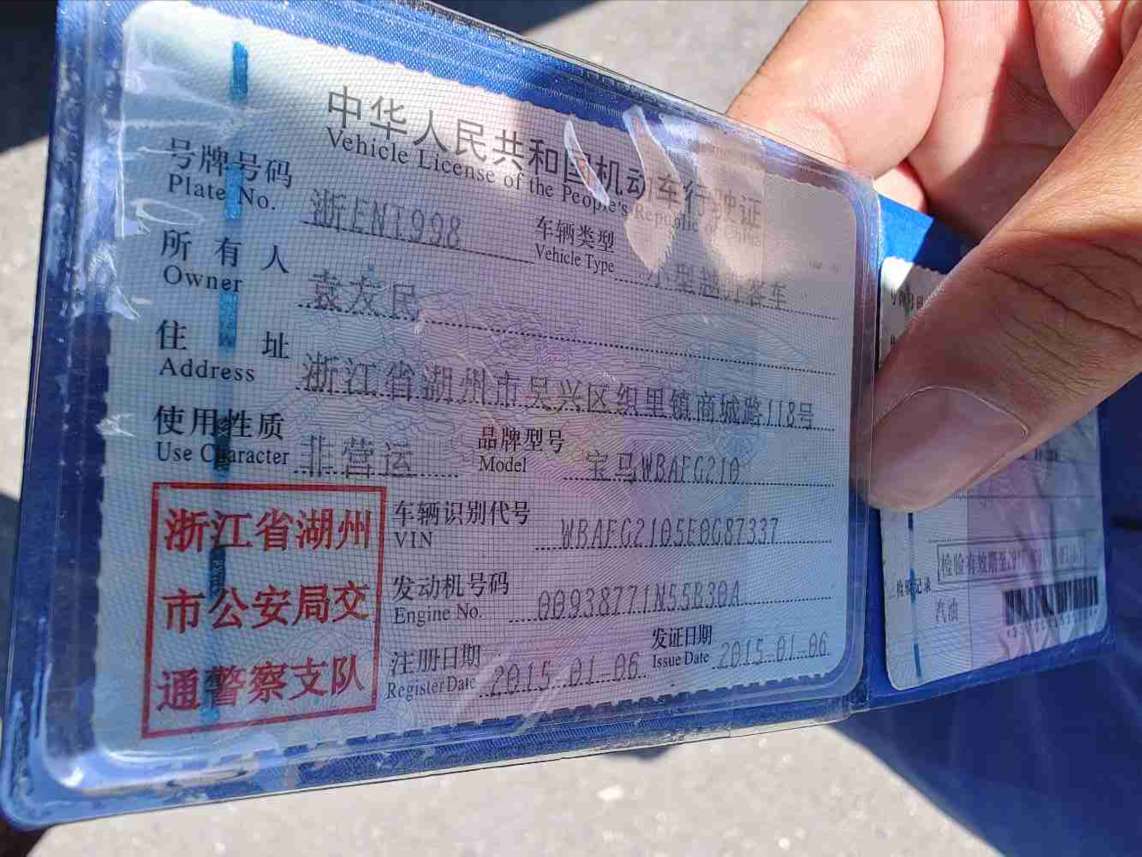 中华人民共和国机动车行驶证
Vehicle License of the People's Republic of China
号牌号码 浙ENT998 车辆类型 小型越野客车
Plate No. Vehicle Type
所有人 袁友民
Owner
住址 浙江省湖州市吴兴区织里镇商城路118号
Address
使用性质 非营运 品牌型号 宝马WBAFG210
Use Character Model
浙江省湖州
市公安局交
通警察支队
车辆识别代号 WBAFG2105E0G87337
VIN
发动机号码 00938771N55B30A
Engine No.
注册日期 2015-01-06 发证日期 2015-01-06
Register Date Issue Date
检验有效期至
检验记录
汽油